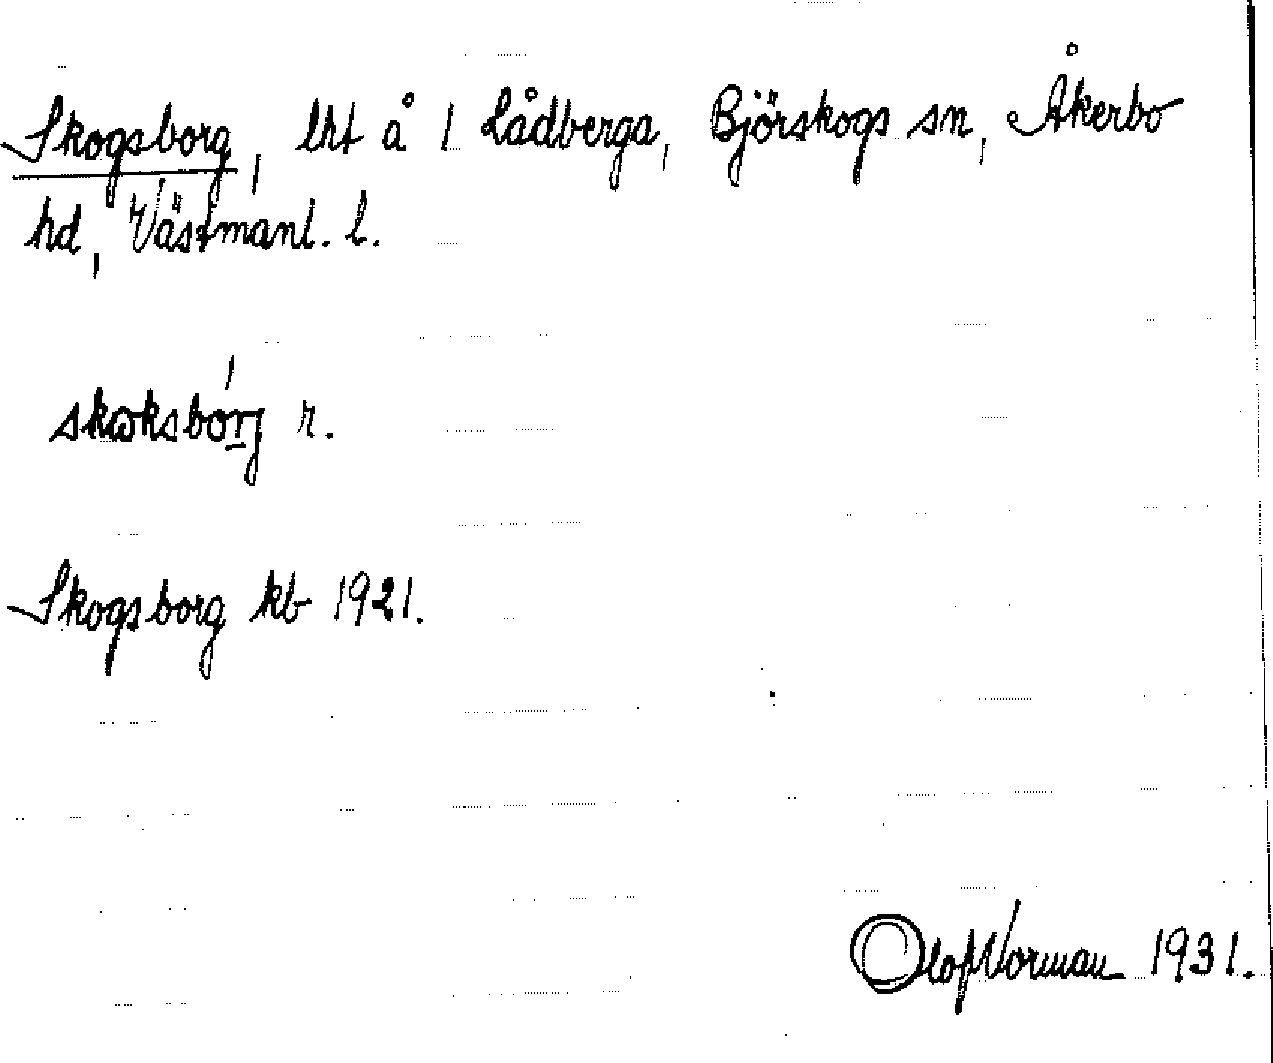 Skogsborg, lht å 1 Lådberga, Björskogs sn, Åkerbo
hd, Västmanl. l.
skɷksbórj r.
Skogsborg kb 1921.
Olof Norman 1931.